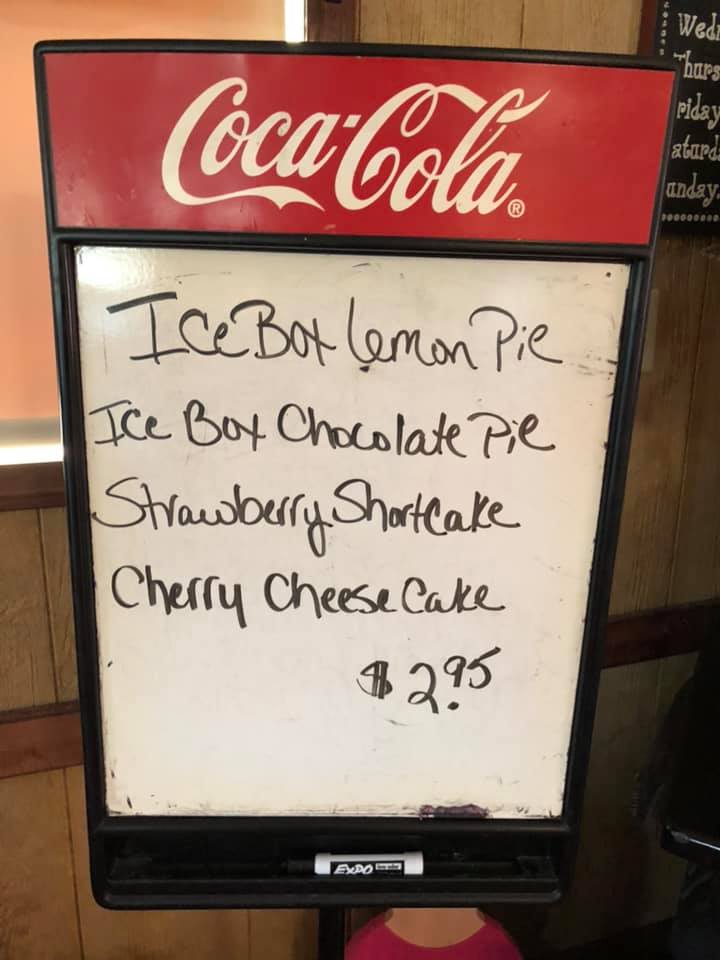 Coca-Cola®
Ice Box Lemon Pie
Ice Box Chocolate Pie
Strawberry Shortcake
Cherry Cheese Cake
$2.95
EXPO
Wed
Thurs
riday
aturd
unday